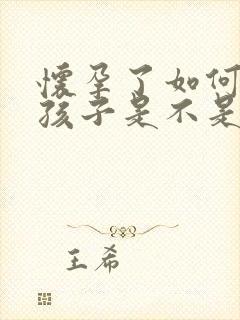 懷孕了如何
孩子是不是
王希